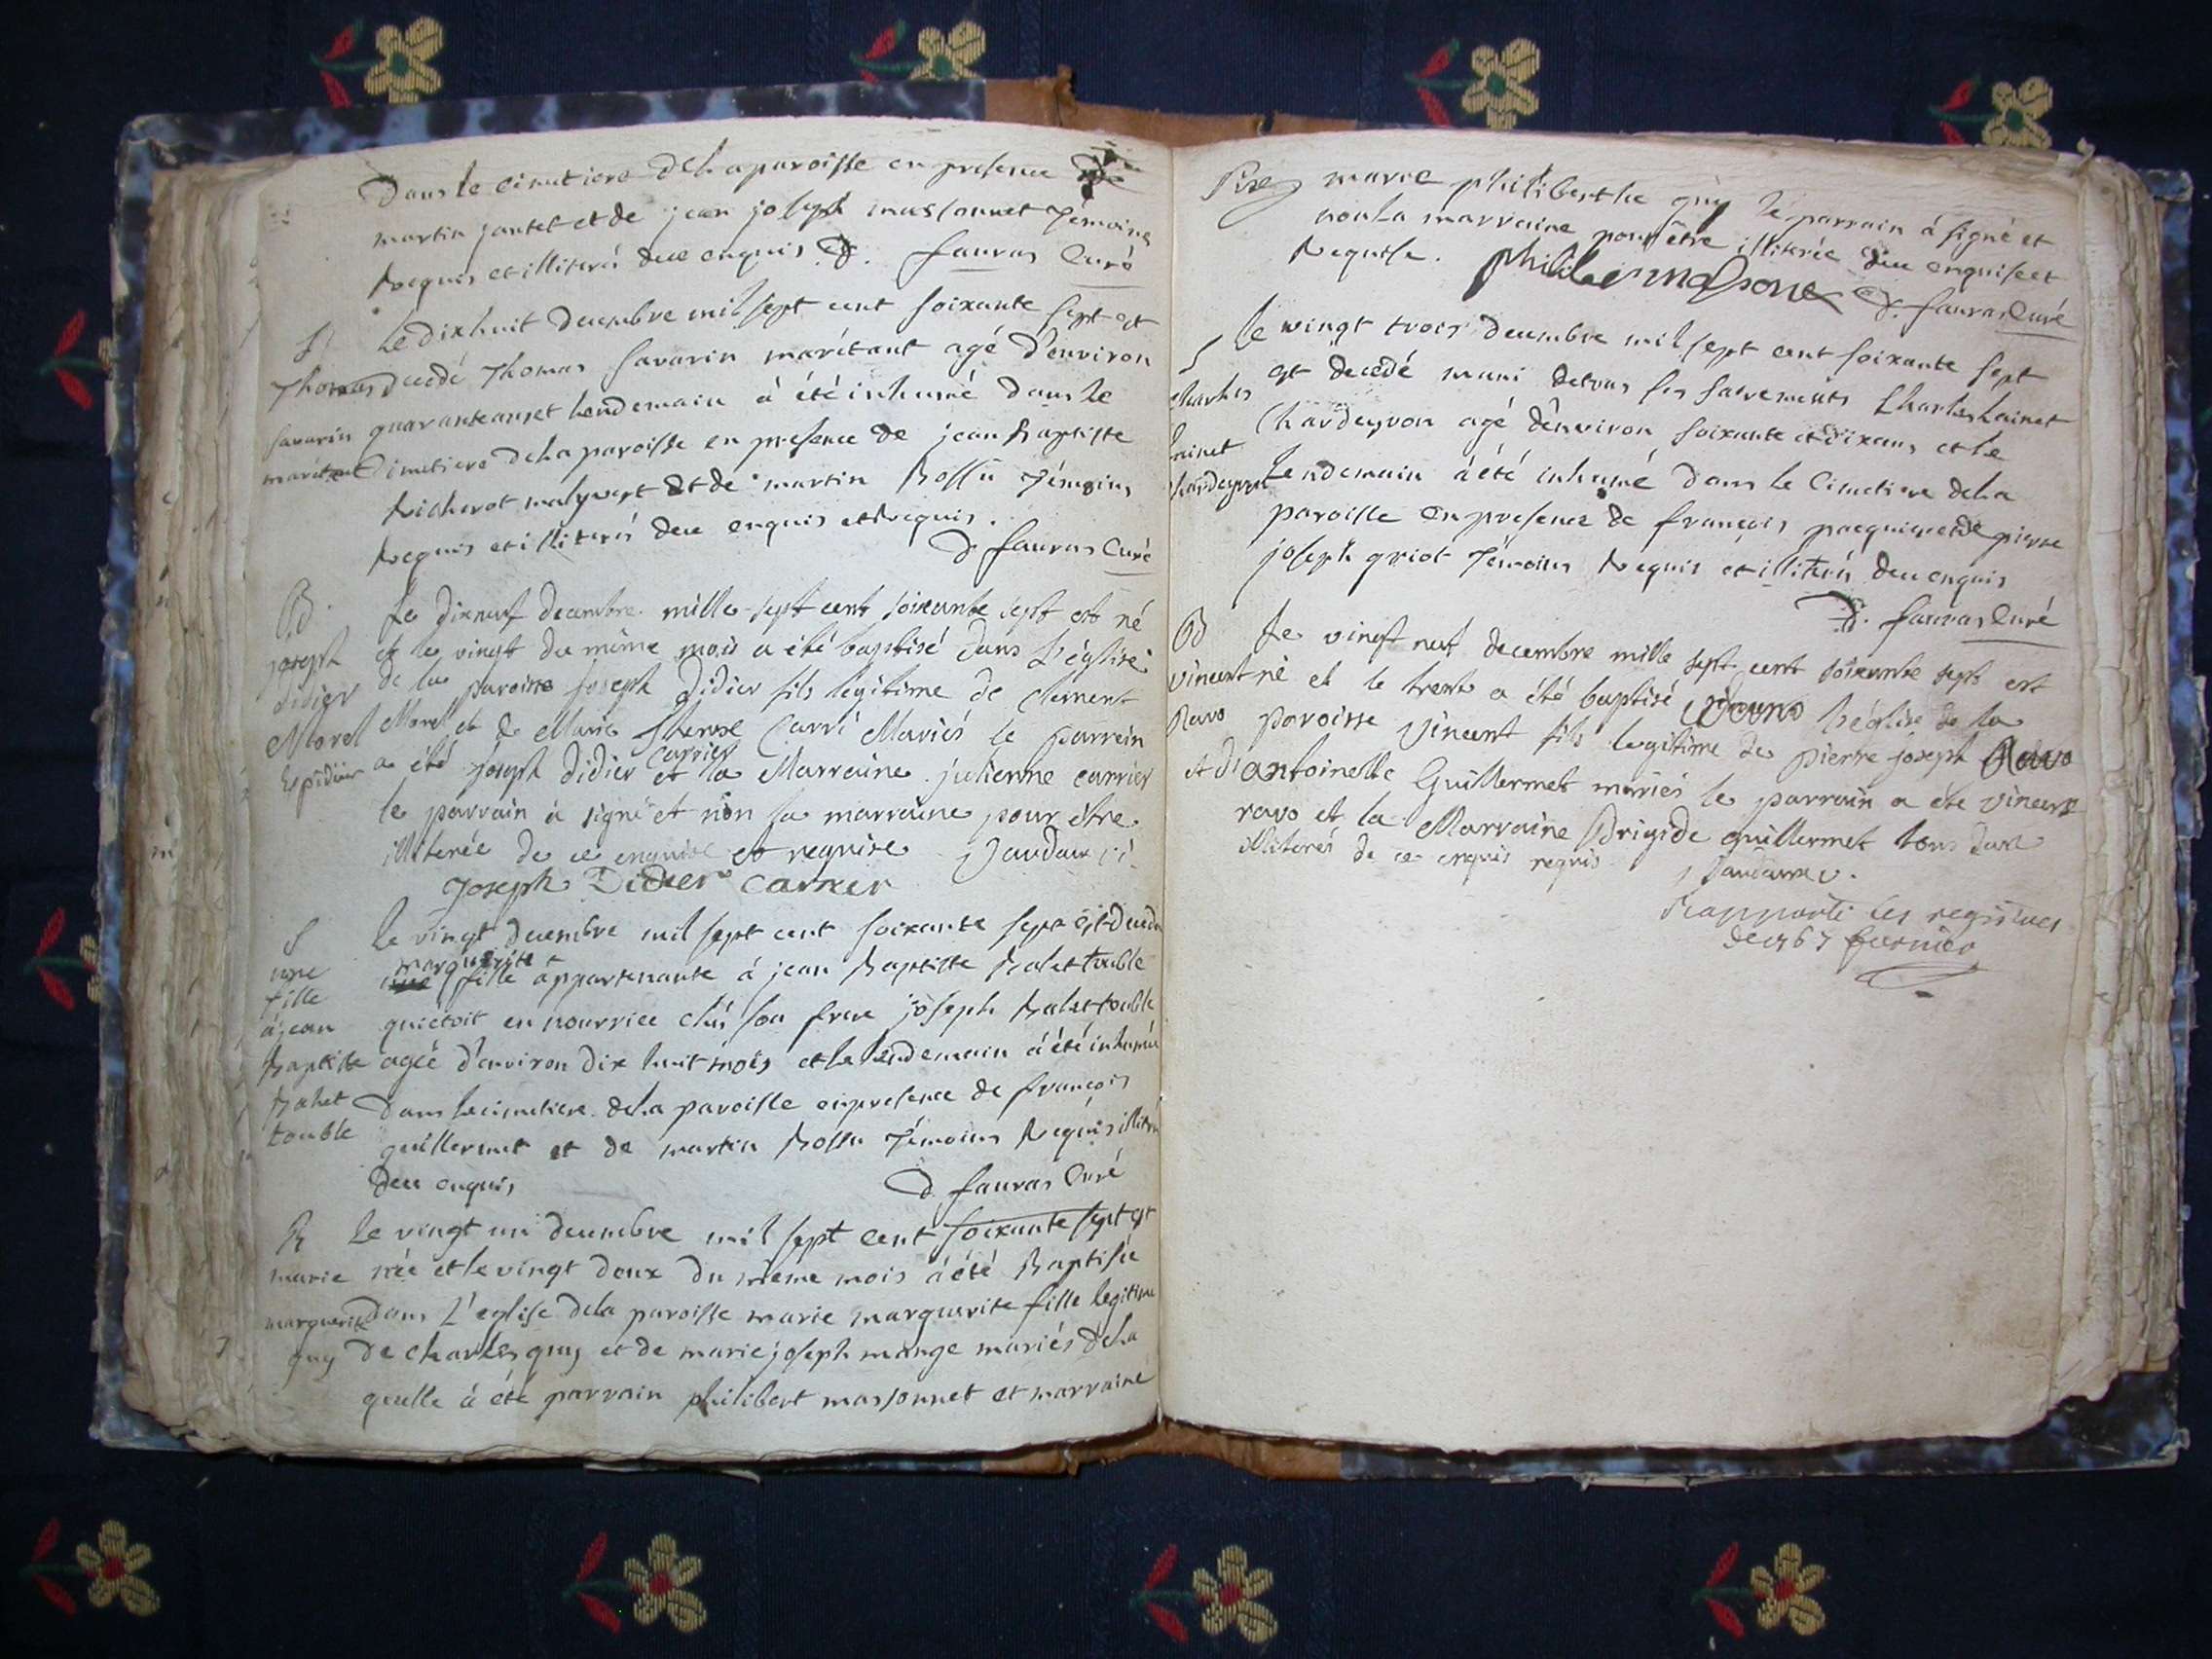 Dans le cimetiere dela paroisse en presence de
martin jantet et de jean joseph massonnet Témoins
Requis et illiterés dece enquis D. fauras Curé
S Le dixhuit decembre mil sept cent soixante sept est
Thomas decedé Thomas savarin marétant agé d'environ
savarin quarante ans et lendemain à été inhumé dans le
marétant Cimetiere dela paroisse en presence de jean Baptiste
Richerot et de martin Bossu Témoins
Requis et illiterés dece enquis et Requis.
D fauras Curé
B. Le dixneuf decembre mille sept cent soixante sept est né
joseph et le vingt du même mois a été baptisé dans L'église
didier de la paroisse joseph Didier fils légitime de clement
Morel Morel et de Marie therese Carri Mariés le parrein
a été joseph didier carrier et la Marraine julienne carrier
le parrain à signé et non la marraine pour être
illiterée de ce enquise et requise
Joseph Didier Carrier
S Le vingt decembre mil sept cent soixante sept est decedé
une une marguerite fille appartenante à jean Baptiste Balet touble
fille
àjean quietoit en nourrice chés son frere joseph Balet touble
Baptiste agéé d'environ dix huit mois et le lendemain à été inhumée
Balet Dans le cimetiere dela paroisse en presence de françois
touble guillermet et de martin Bossu Témoins Requis illiterés
dece enquis D. fauras Curé
B Le vingt un decembre mil sept cent soixante sept est
marie née et le vingt deux du même mois à été Baptisée
marguerite dans L'eglise dela paroisse marie marguerite fille legitime
guy de charles guy et de marie joseph mange mariés dela
quelle à été parrain philibert massonnet et marraine
marie philiberthe guy le parrain à signé et
non la marraine pour être illiterée dece enquise et
Requise. philiber masone D. fauras Curé
S Le vingt trois decembre mil sept cent soixante sept
charles est decedé muni detous ses sacrements Charles Lainet
Lainet Chardeyron agé d'environ soixante et dix ans et le
chardeyron Lendemain à été inhumé dans le Cimetiere dela
paroisse en presence de françois pacquier et de pierre
joseph griot Témoins Requis et illiterés dece enquis
D. fauras Curé
B Le vingt neuf decembre mille sept cent soixante sept est
vincent né et le trente a été baptisé dans L'église de la
Ravo paroisse Vincent fils legitime de pierre joseph Ravo
et d'antoinette Guillermet mariés le parrain a été vincent
ravo et la Marraine Brigide guillermet tous deux
illiterés de ce enquis requis
Rapporté les registres
de 1767 fournier